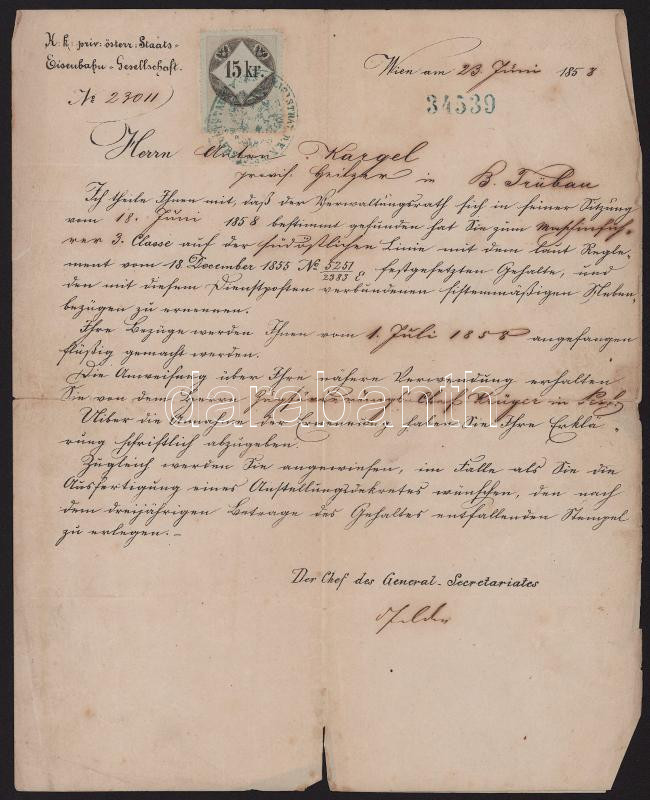 K: k: priv: österr: Staats=
Eisenbahn = Gesellschaft.
Wien am 23. Juni 1858
No 23011
15 kr.
34539
Herrn Anton Kargel
provis. Heitzer in B. Trübau
Ich theile Ihnen mit, daß der Verwaltungsrath sich in seiner Sitzung
vom 18. Juni 1858 bestimmt gefunden hat Sie zum Maschinfüh-
rer 3. Classe auf der südöstlichen Linie mit dem laut Regle-
ment vom 18 December 1855 No 5251/2383 E festgesetzten Gehalte, und
den mit diesem Dienstposten verbundenen sistemmäßigen Neben-
bezügen zu ernennen.
Ihre Bezüge werden Ihnen vom 1. Juli 1858 angefangen
flüßig gemacht werden.
Die Anweisung über Ihre nähere Verwendung erhalten
Sie von dem Herrn Chef Krüger in
Uiber die Annahme der Ernennung haben Sie Ihre Erklä-
rung schriftlich abzugeben.
Zugleich werden Sie angewiesen, im Falle als Sie die
Ausfertigung eines Anstellungsdekretes wünschen, den nach
dem dreijährigen Betrage des Gehaltes entfallenden Stempel
zu erlegen.-
Der Chef des General-Secretariates
darabanth